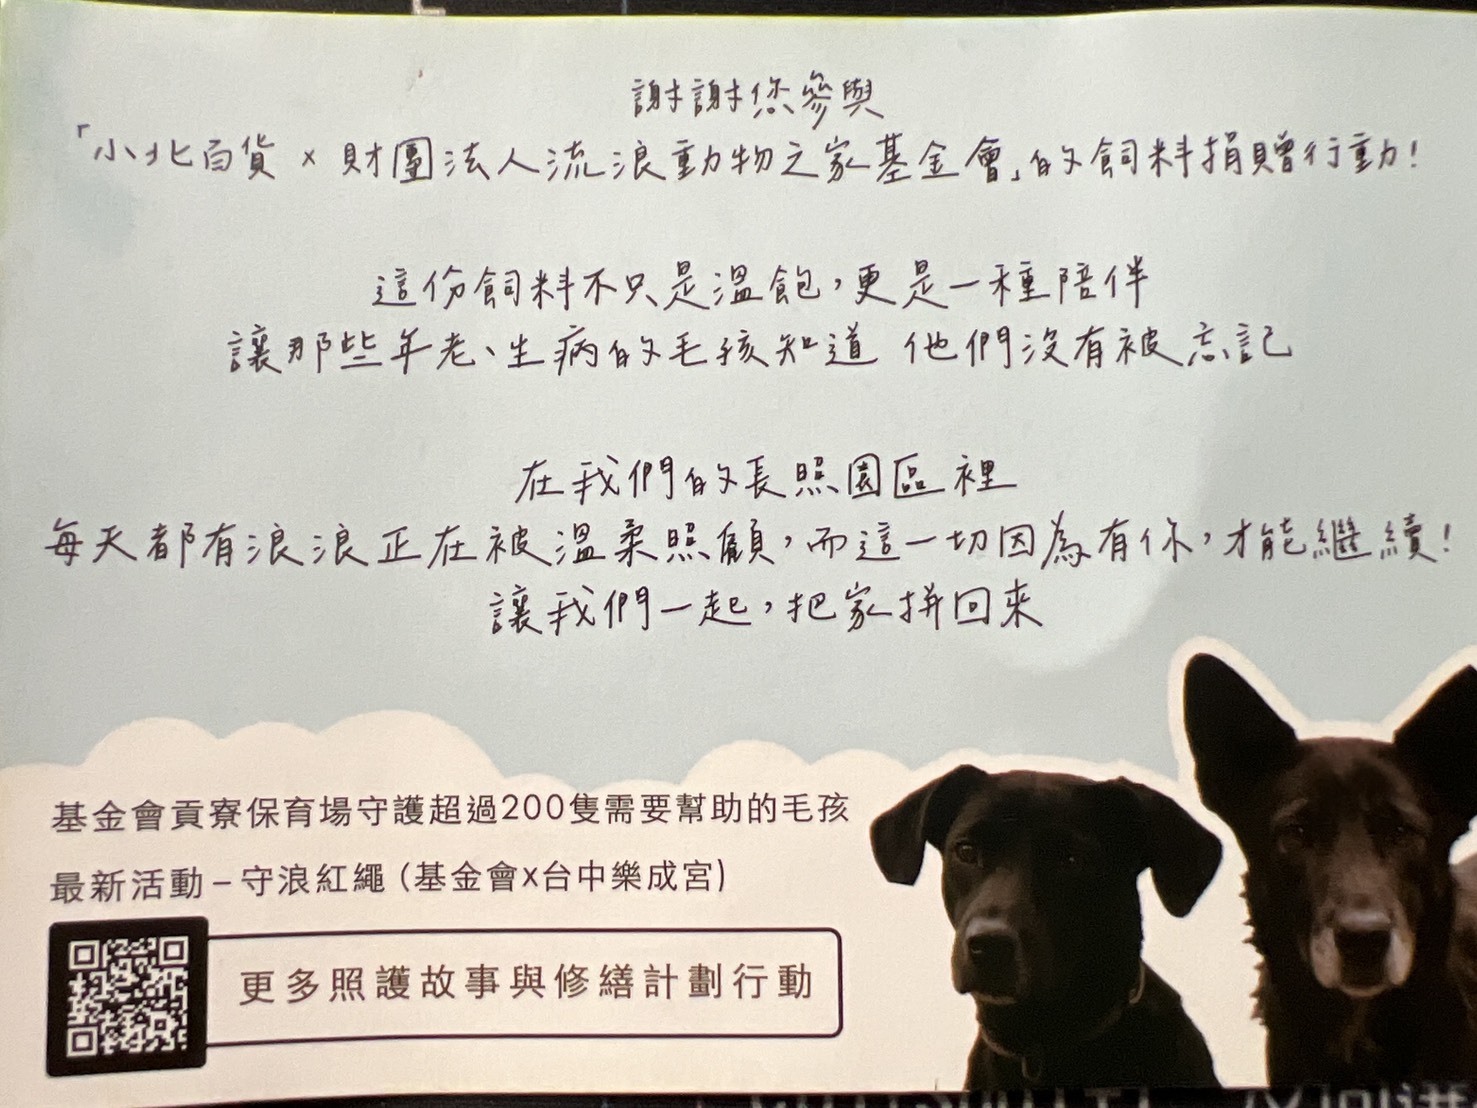 謝謝您參與
「小北百貨 × 財團法人流浪動物之家基金會」的飼料捐贈行動!
這份飼料不只是溫飽,更是一種陪伴
讓那些年老、生病的毛孩知道 他們沒有被忘記
在我們的長照園區裡
每天都有浪浪正在被溫柔照顧,而這一切因為有你,才能繼續!
讓我們一起,把家拼回來
基金會貢寮保育場守護超過200隻需要幫助的毛孩
最新活動–守浪紅繩(基金會x台中樂成宮)
更多照護故事與修繕計劃行動